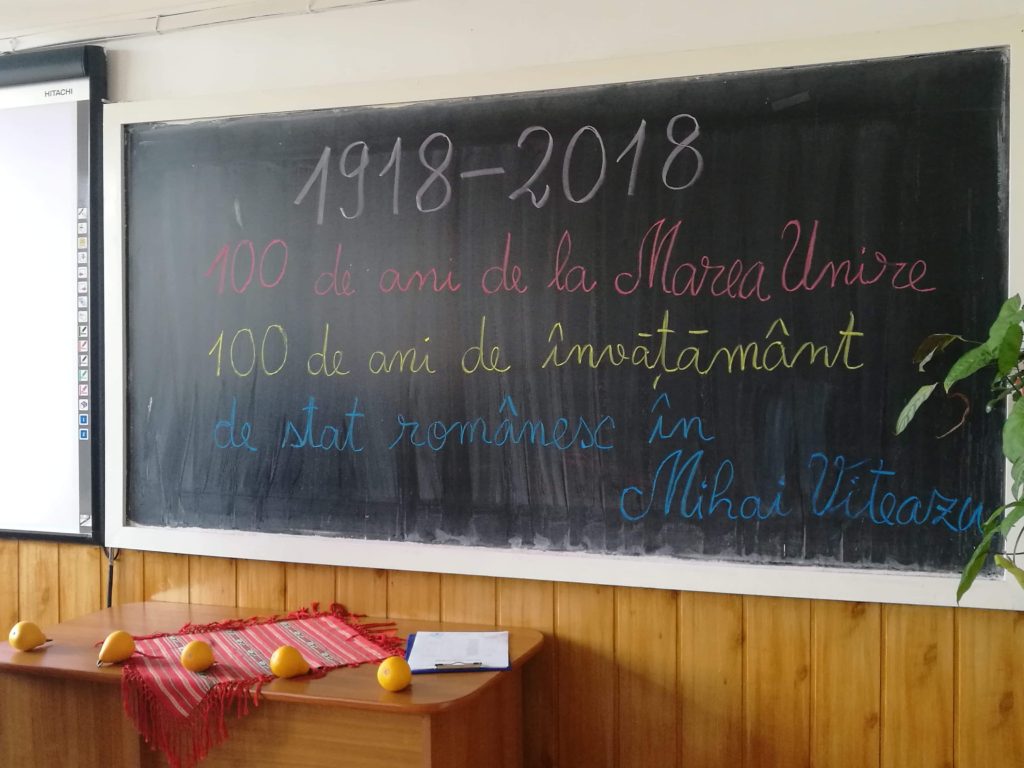 HITACHI
1918-2018
100 de ani de la Marea Unire
100 de ani de învățământ
de stat românesc în
Mihai Viteazu